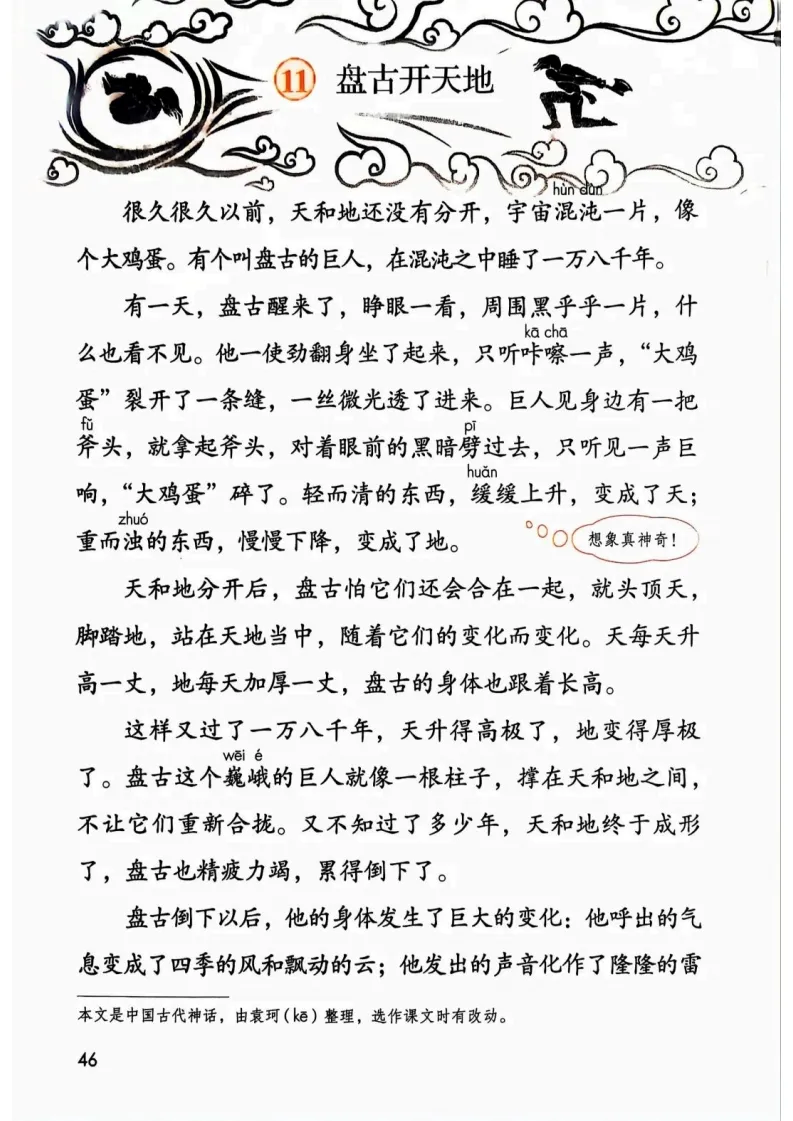 11 盘古开天地
hùn dùn
很久很久以前，天和地还没有分开，宇宙混沌一片，像
个大鸡蛋。有个叫盘古的巨人，在混沌之中睡了一万八千年。
有一天，盘古醒来了，睁眼一看，周围黑乎乎一片，什
kā chā
么也看不见。他一使劲翻身坐了起来，只听咔嚓一声，“大鸡
蛋”裂开了一条缝，一丝微光透了进来。巨人见身边有一把
fǔ pī
斧头，就拿起斧头，对着眼前的黑暗劈过去，只听见一声巨
huǎn
响，“大鸡蛋”碎了。轻而清的东西，缓缓上升，变成了天；
zhuó
重而浊的东西，慢慢下降，变成了地。
想象真神奇！
天和地分开后，盘古怕它们还会合在一起，就头顶天，
脚踏地，站在天地当中，随着它们的变化而变化。天每天升
高一丈，地每天加厚一丈，盘古的身体也跟着长高。
这样又过了一万八千年，天升得高极了，地变得厚极
wēi é
了。盘古这个巍峨的巨人就像一根柱子，撑在天和地之间，
不让它们重新合拢。又不知过了多少年，天和地终于成形
了，盘古也精疲力竭，累得倒下了。
盘古倒下以后，他的身体发生了巨大的变化：他呼出的气
息变成了四季的风和飘动的云；他发出的声音化作了隆隆的雷
本文是中国古代神话，由袁珂（kē）整理，选作课文时有改动。
46